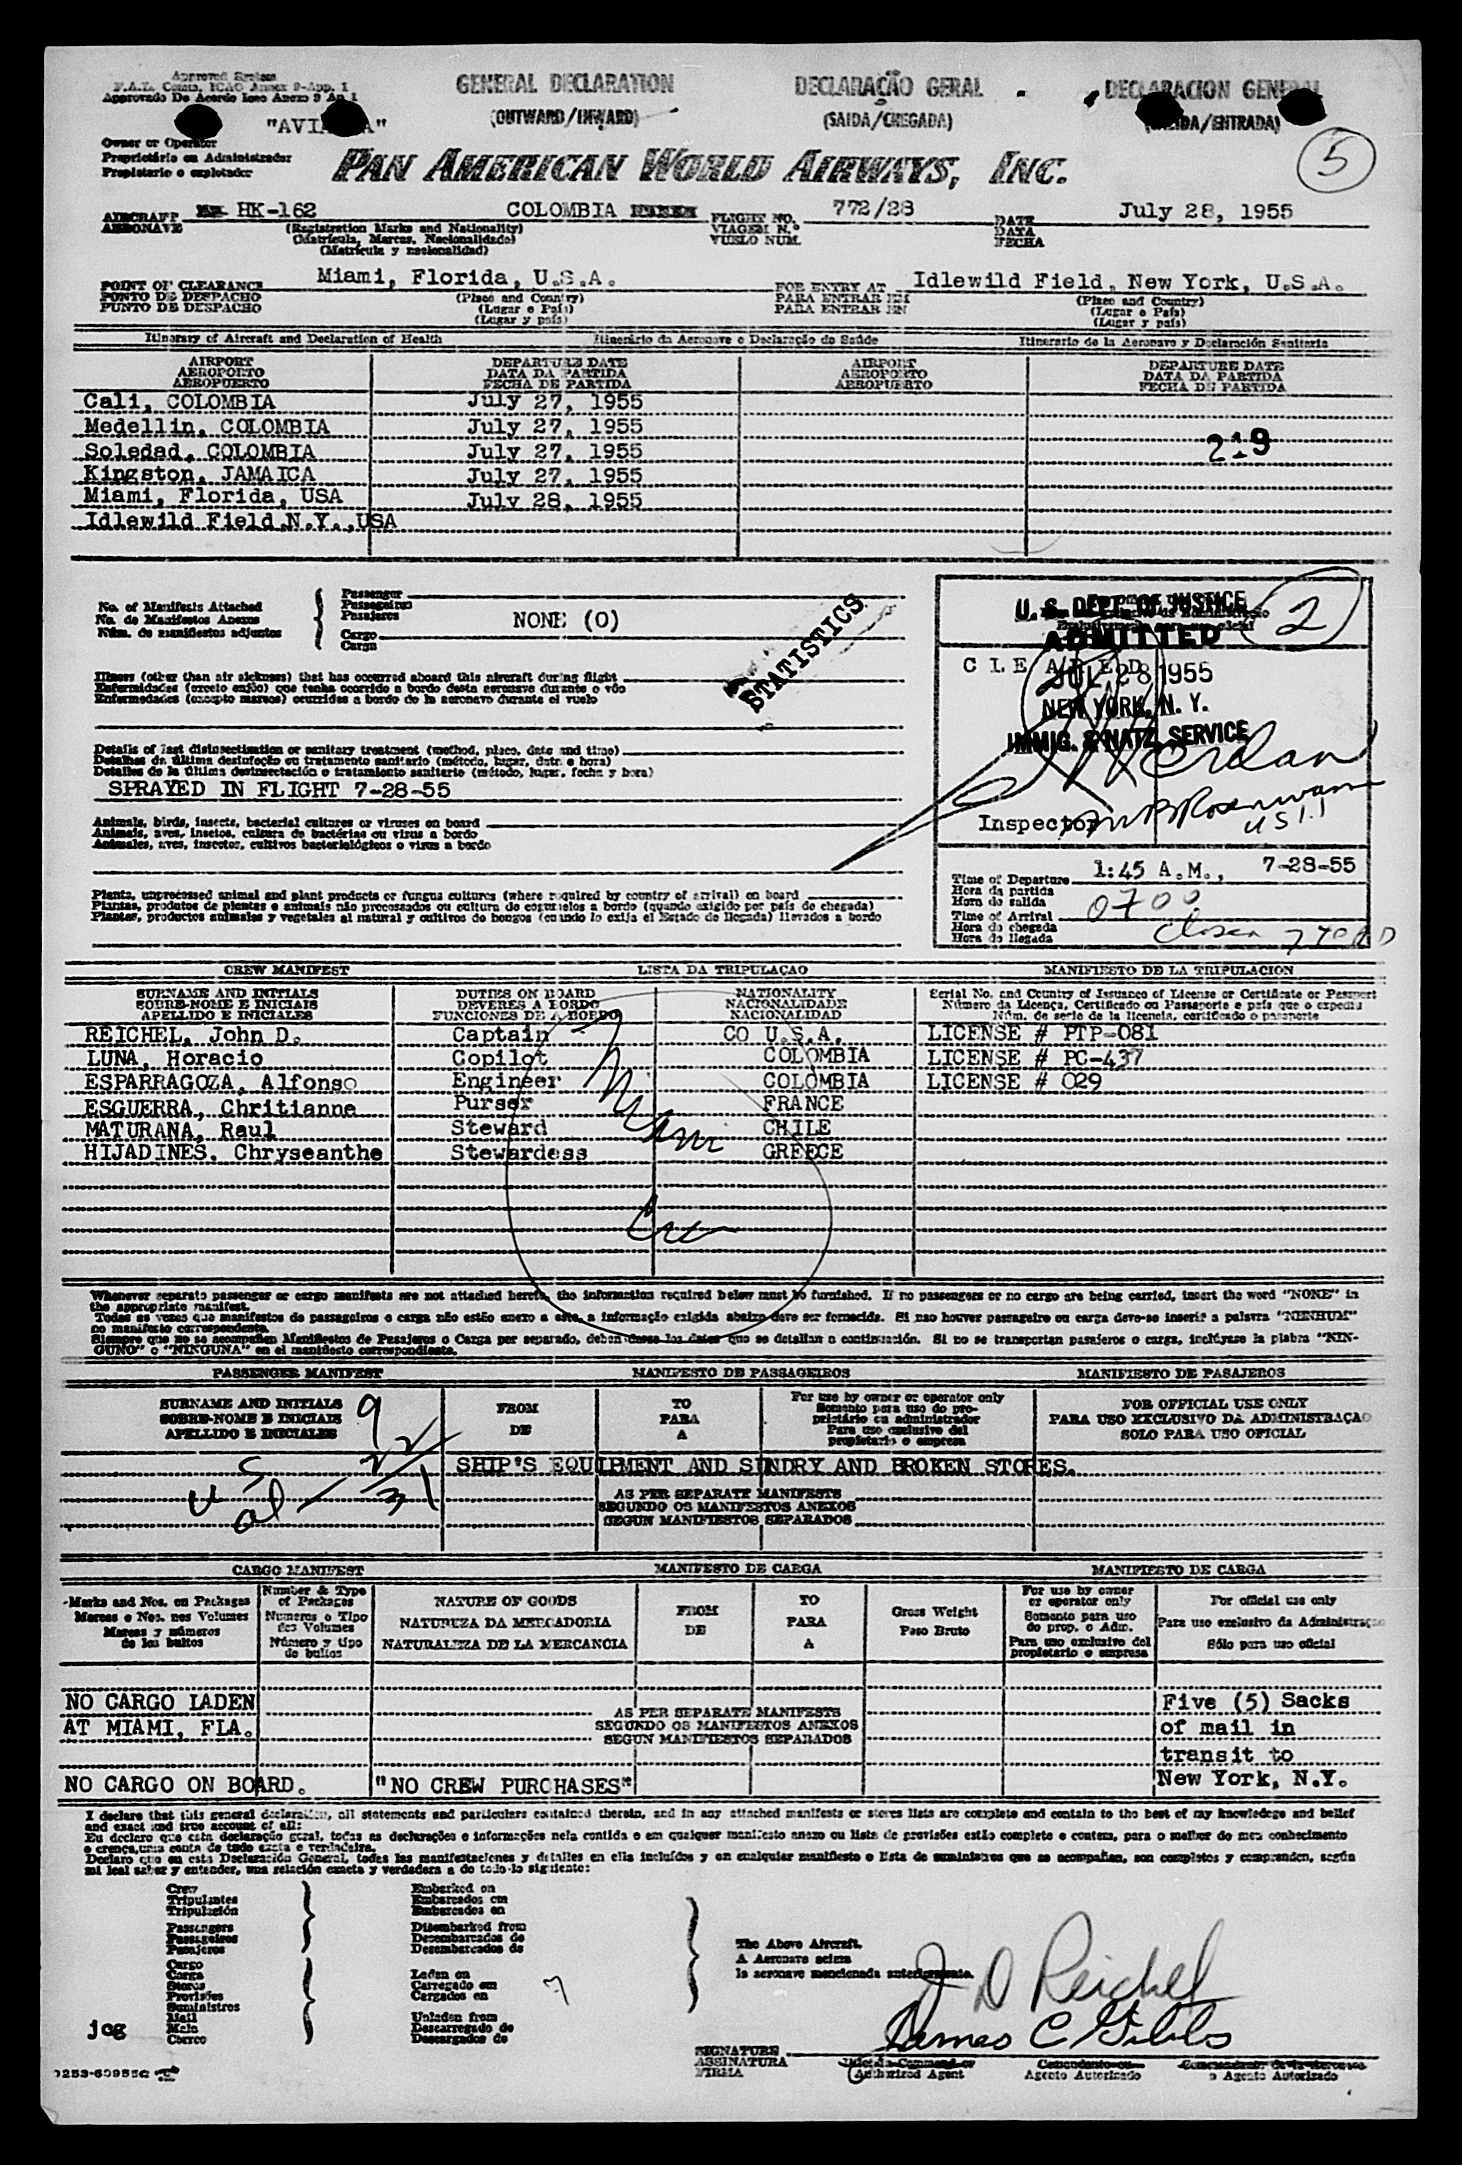 Approved System
F.A.L. Comm. ICAO Annex 9-App. 1
Approvado De Acordo Icao Anexo 9 Ap 1
GENERAL DECLARATION
(OUTWARD/INWARD)
DECLARAÇÃO GERAL
(SAIDA/CHEGADA)
DECLARACION GENERAL
5
Owner or Operator
Proprietário ou Administrador
Propietario o explotador
PAN AMERICAN WORLD AIRWAYS, INC.
AIRCRAFT
AERONAVE
HK-162
COLOMBIA
(Registration Marks and Nationality)
(Matrícula, Marcas, Nacionalidade)
(Matrícula y nacionalidad)
FLIGHT NO.
VIAGEM N.º
VUELO NUM.
772/28
DATE
DATA
FECHA
July 28, 1955
POINT OF CLEARANCE
PONTO DE DESPACHO
PUNTO DE DESPACHO
Miami, Florida, U.S.A.
(Place and Country)
(Lugar e País)
(Lugar y país)
FOR ENTRY AT
PARA ENTRAR EM
PARA ENTRAR EN
Idlewild Field, New York, U.S.A.
(Place and Country)
(Lugar e País)
(Lugar y país)
Itinerary of Aircraft and Declaration of Health
Itinerário da Aeronave e Declaração de Saúde
Itinerario de la Aeronave y Declaración Sanitaria
AIRPORT
AEROPORTO
AEROPUERTO
DEPARTURE DATE
DATA DA PARTIDA
FECHA DE PARTIDA
AIRPORT
AEROPORTO
AEROPUERTO
DEPARTURE DATE
DATA DA PARTIDA
FECHA DE PARTIDA
Cali, COLOMBIA July 27, 1955
Medellin, COLOMBIA July 27, 1955
Soledad, COLOMBIA July 27, 1955
219
Kingston, JAMAICA July 27, 1955
Miami, Florida, USA July 28, 1955
Idlewild Field,N.Y.,USA
No. of Manifests Attached
No. de Manifestos Anexos
Núm. de manifiestos adjuntos
Passenger
Passageiros
Pasajeros
Cargo
Carga
NONE (0)
STATISTICS
U. S. DEPT. OF JUSTICE
ADMITTED
2
CLEARED
JUL 28 1955
NEW YORK, N. Y.
IMMIG. & NATZ. SERVICE
Inspector
Illness (other than air sickness) that has occurred aboard this aircraft during flight
Enfermidades (exceto enjôo) que tenha ocorrido a bordo desta aeronave durante o vôo
Enfermedades (excepto mareos) ocurridas a bordo de la aeronave durante el vuelo
Details of last disinsectization or sanitary treatment (method, place, date and time)
Detalhes da última desinfeção ou tratamento sanitario (método, lugar, data e hora)
Detalles de la última desinsectación o tratamiento sanitario (método, lugar, fecha y hora)
SPRAYED IN FLIGHT 7-28-55
Animals, birds, insects, bacterial cultures or viruses on board
Animais, aves, insetos, cultura de bactérias ou virus a bordo
Animales, aves, insectos, cultivos bacteriológicos o virus a bordo
Plants, unprocessed animal and plant products or fungus cultures (where required by country of arrival) on board
Plantas, produtos de plantas e animais não processados ou cultura de cogumelos a bordo (quando exigido por país de chegada)
Plantas, productos animales y vegetales al natural y cultivos de hongos (cuando lo exija el Estado de llegada) llevados a bordo
Time of Departure
Hora da partida
Hora de salida
1:45 A.M., 7-28-55
Time of Arrival
Hora da chegada
Hora de llegada
0700
CREW MANIFEST
LISTA DA TRIPULAÇAO
MANIFIESTO DE LA TRIPULACION
SURNAME AND INITIALS
SOBRE-NOME E INICIAIS
APELLIDO E INICIALES
DUTIES ON BOARD
DEVERES A BORDO
FUNCIONES DE A BORDO
NATIONALITY
NACIONALIDADE
NACIONALIDAD
Serial No. and Country of Issuance of License or Certificate or Passport
Número da Licença, Certificado ou Passaporte e país que o expediu
Núm. de serie de la licencia, certificado o pasaporte
REICHEL, John D. Captain CO U.S.A. LICENSE # PTP-081
LUNA, Horacio Copilot COLOMBIA LICENSE # PC-437
ESPARRAGOZA, Alfonso Engineer COLOMBIA LICENSE # 029
ESGUERRA, Chritianne Purser FRANCE
MATURANA, Raul Steward CHILE
HIJADINES, Chryseanthe Stewardess GREECE
Miami
Whenever separate passenger or cargo manifests are not attached hereto, the information required below must be furnished. If no passengers or no cargo are being carried, insert the word "NONE" in
the appropriate manifest.
Todas as vezes que manifestos de passageiros e carga não estão anexo a este, a informação exigida abaixo deve ser fornecida. Si nao houver passageiro ou carga deve-se inserir a palavra "NENHUM"
no manifesto correspondente.
Siempre que no se acompañen Manifiestos de Pasajeros o Carga por separado, deben darse los datos que se detallan a continuación. Si no se transportan pasajeros o carga, inclúyase la plabra "NIN-
GUNO" o "NINGUNA" en el manifiesto correspondiente.
PASSENGER MANIFEST
MANIFESTO DE PASSAGEIROS
MANIFIESTO DE PASAJEROS
SURNAME AND INITIALS
SOBRE-NOME E INICIAIS
APELLIDO E INICIALES
FROM
DE
TO
PARA
A
For use by owner or operator only
Somente para uso do pro-
prietário ou administrador
Para uso exclusivo del
propietario o empresa
FOR OFFICIAL USE ONLY
PARA USO EXCLUSIVO DA ADMINISTRAÇAO
SOLO PARA USO OFICIAL
9
22
31
SHIP'S EQUIPMENT AND SUNDRY AND BROKEN STORES.
AS PER SEPARATE MANIFESTS
SEGUNDO OS MANIFESTOS ANEXOS
SEGUN MANIFIESTOS SEPARADOS
CARGO MANIFEST
MANIFESTO DE CARGA
MANIFIESTO DE CARGA
Marks and Nos. on Packages
Marcas e Nos. nos Volumes
Marcas y números
de los bultos
Number & Type
of Packages
Numeros e Tipo
dos Volumes
Número y tipo
de bultos
NATURE OF GOODS
NATUREZA DA MERCADORIA
NATURALEZA DE LA MERCANCIA
FROM
DE
TO
PARA
A
Gross Weight
Peso Bruto
For use by owner
or operator only
Somente para uso
do prop. o Adm.
Para uso exclusivo del
propietario o empresa
For official use only
Para uso exclusivo da Administração
Sólo para uso oficial
NO CARGO LADEN
AT MIAMI, FLA.
AS PER SEPARATE MANIFESTS
SEGUNDO OS MANIFESTOS ANEXOS
SEGUN MANIFIESTOS SEPARADOS
Five (5) Sacks
of mail in
transit to
New York, N.Y.
NO CARGO ON BOARD.
"NO CREW PURCHASES"
I declare that this general declaration, all statements and particulars contained therein, and in any attached manifests or stores lists are complete and contain to the best of my knowledege and belief
and exact and true account of all:
Eu declaro que esta declaração geral, todas as declarações e informações nela contida e em qualquer manifesto anexo ou lista de provisões estão completo e contem, para o melhor do meu conhecimento
e crença,uma conta de tudo exata e verdadeira.
Declaro que en esta Declaración General, todas las manifestaciones y detalles en ella incluídos y en cualquier manifiesto o lista de suministros que se acompañan, son completos y comprenden, según
mi leal saber y entender, una relación exacta y verdadera a de todo lo siguiente:
Crew
Tripulantes
Tripulación
Passengers
Passageiros
Pasajeros
Cargo
Carga
Stores
Provisões
Suministros
Mail
Mala
Correo
Embarked on
Embarcados em
Embarcados en
Disembarked from
Desembarcados de
Desembarcados de
Laden on
Carregado em
Cargados en
Unladen from
Descarregado de
Descargados de
The Above Aircraft.
A Aeronave acima
la aeronave mencionada anteriormente.
J D Reichel
James C Gibbs
jcg
SIGNATURE
ASSINATURA
FIRMA
Authorized Agent
Agente Autorizado
o Agente Autorizado